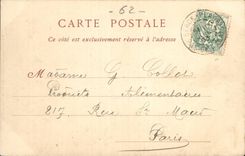 -62-
CARTE POSTALE
Ce côté est exclusivement réservé à l'adresse
Madame G Collot
Produits Alimentaires
217 Rue St Maur
Paris